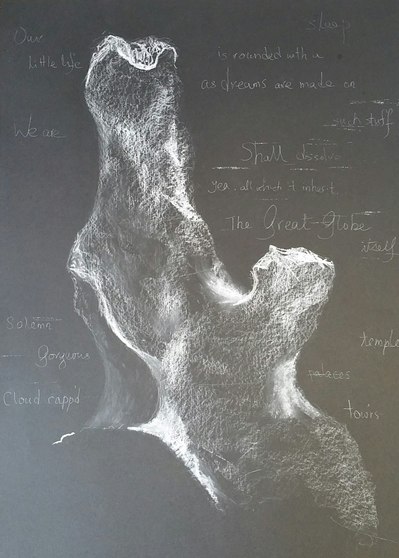 sleep
Our
Little life
is rounded with a
as dreams are made on
such stuff
We are
Shall dissolve
Yea, all which it inherit
The Great Globe
itself
Solemn
temple
Gorguous
palaces
Cloud capp'd
towrs